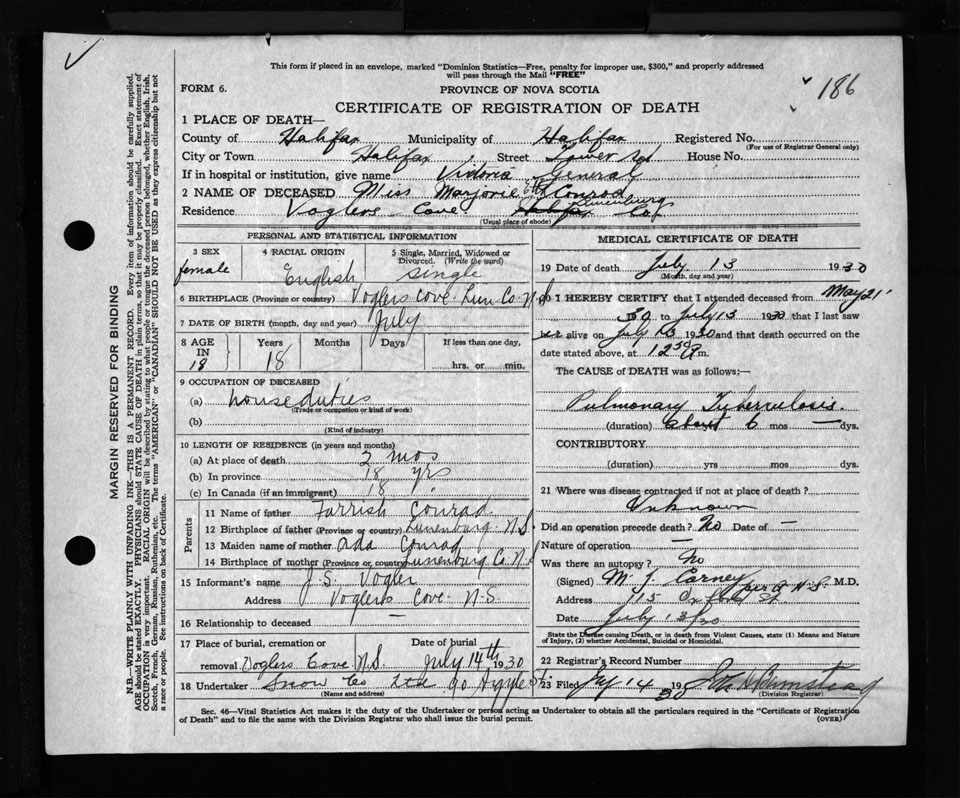 This form if placed in an envelope, marked "Dominion Statistics—Free, penalty for improper use, $300," and properly addressed
will pass through the Mail "FREE"
186
FORM 6.
PROVINCE OF NOVA SCOTIA
CERTIFICATE OF REGISTRATION OF DEATH
1 PLACE OF DEATH—
County of Halifax Municipality of Halifax Registered No.
(For use of Registrar General only)
City or Town Halifax Street Tower Rd House No.
If in hospital or institution, give name Victoria General
2 NAME OF DECEASED Miss Marjorie Conrad
Residence Voglers Cove Halifax Lunenburg Co.
(Usual place of abode)
PERSONAL AND STATISTICAL INFORMATION
3 SEX
female
4 RACIAL ORIGIN
English
5 Single, Married, Widowed or
Divorced. (Write the word)
single
6 BIRTHPLACE (Province or country) Voglers Cove Lun. Co. N.S
7 DATE OF BIRTH (month, day and year) July
8 AGE
IN
18
Years
18
Months
Days
If less than one day,
hrs. or min.
9 OCCUPATION OF DECEASED
(a) house duties
(Trade or occupation or kind of work)
(b)
(Kind of industry)
10 LENGTH OF RESIDENCE (in years and months)
(a) At place of death 2 mos
(b) In province 18 yrs
(c) In Canada (if an immigrant) 18 "
Parents
11 Name of father Farrish Conrad
12 Birthplace of father (Province or country) Lunenburg N.S.
13 Maiden name of mother Ada Conrad
14 Birthplace of mother (Province or country) Lunenburg Co N.S
15 Informant's name J. S. Vogler
Address Voglers Cove N-S.
16 Relationship to deceased —
17 Place of burial, cremation or
removal Voglers Cove N.S.
Date of burial
July 14th 1930
18 Undertaker Snow Co Ltd 90 Argyle St.
(Name and address)
MEDICAL CERTIFICATE OF DEATH
19 Date of death July 13 1930
(Month, day and year)
20 I HEREBY CERTIFY that I attended deceased from May 21
30 to July 13 1930 that I last saw
her alive on July 13 1930 and that death occurred on the
date stated above, at 12 50 A m.
The CAUSE of DEATH was as follows:—
Pulmonary Tuberculosis.
(duration) about 6 mos — dys.
CONTRIBUTORY
(duration) yrs mos dys.
21 Where was disease contracted if not at place of death?
Unknown
Did an operation precede death? No Date of —
Nature of operation —
Was there an autopsy? No
(Signed) M. J. Carney per M.D.
Address 115 Oxford St.
Date July 13/30
State the Disease causing Death, or in death from Violent Causes, state (1) Means and Nature
of Injury, (2) whether Accidental, Suicidal or Homicidal.
22 Registrar's Record Number
23 Filed July 14 1930
(Division Registrar)
Sec. 46—Vital Statistics Act makes it the duty of the Undertaker or person acting as Undertaker to obtain all the particulars required in the "Certificate of Registration
of Death" and to file the same with the Division Registrar who shall issue the burial permit.
(OVER)
MARGIN RESERVED FOR BINDING
N.B.—WRITE PLAINLY WITH UNFADING INK—THIS IS A PERMANENT RECORD. Every item of information should be carefully supplied.
AGE should be stated EXACTLY. PHYSICIANS should STATE CAUSE OF DEATH in plain terms, so that it may be properly classified. Exact statement of
OCCUPATION is very important. RACIAL ORIGIN will be described by stating to what people or tongue the deceased person belonged, whether English, Irish,
Scotch, French, German, Russian, Ruthenian, etc. The terms "AMERICAN" or "CANADIAN" SHOULD NOT BE USED as they express citizenship but not
a race or people. See instructions on back of Certificate.